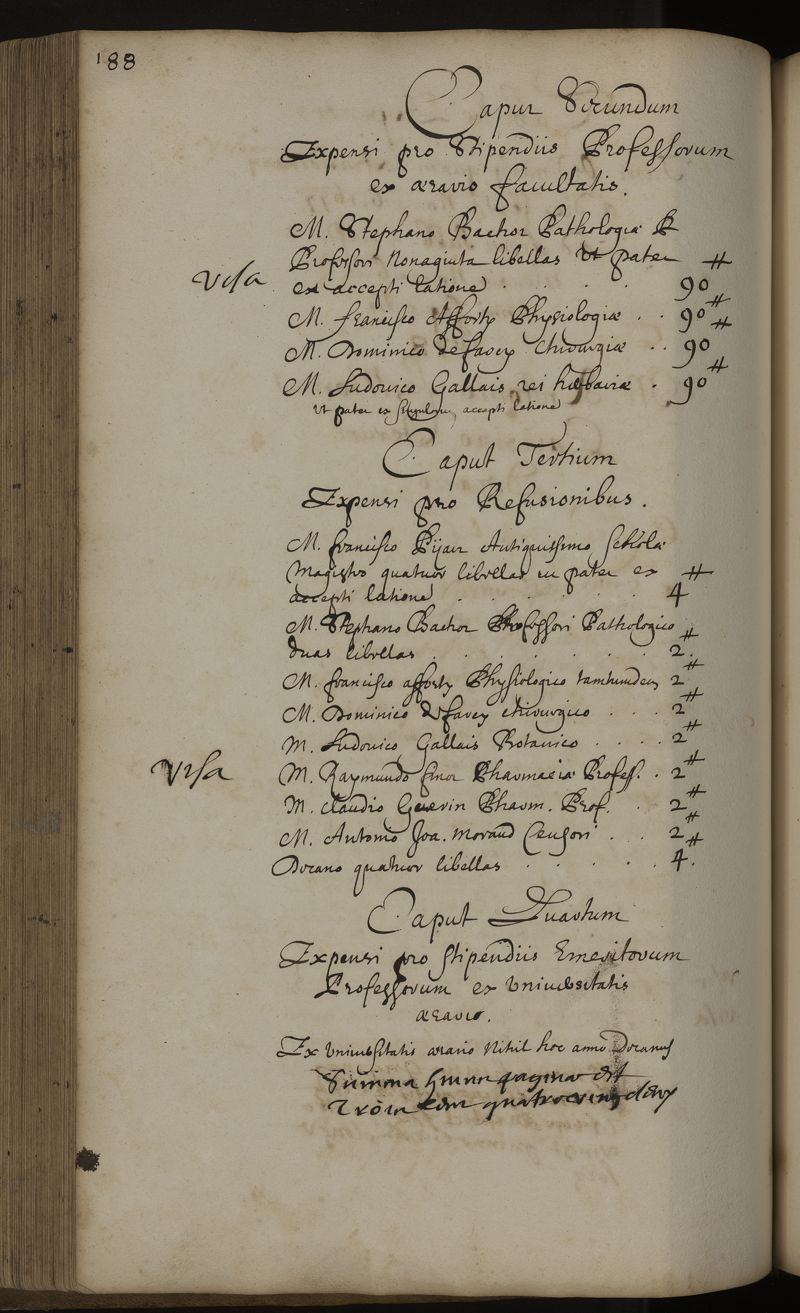 188
Caput Secundum
Expensi pro Stipendiis Professorum
ex ærario facultatis.
M. Stephano Bachor Pathologiæ
Professori Nonaginta libellas ut patet #
Visa
ex accepti ratione . . . . 90
M. francisco Afforty Physiologiæ . . 90 #
M. Dominico de farcy chirurgiæ . . 90 #
M. Ludovico Gallais rei herbariæ . 90 #
ut patet ex accepti ratione
Caput Tertium
Expensi pro Refusionibus.
M. francisco Pijart Antiquissimo scholæ
Magistro quatuor libellas ut patet ex #
accepti ratione . . . . . . 4
M. Stephano Bachor Professori Pathologico
duas libellas . . . . . . . 2. #
M. francisco afforty Physiologico tantumdem 2 #
M. Dominico de farcy chirurgico . . . 2 #
M. Ludovico Gallais Botanico . . . . 2 #
Visa
M. Raymundo finot Pharmaciæ Profess. . 2 #
M. claudio Guerin Pharm. Prof. . 2 #
M. Antonio Joa. Morand Censori . . 2 #
Decano quatuor libellas . . . . . 4. #
Caput Quartum
Expensi pro stipendiis Emeritorum
Professorum ex Universitatis
ærario.
Ex Universitatis ærario Nihil hoc anno Decanus
Summa huius paginæ est
Trois cent quatre vingt deux